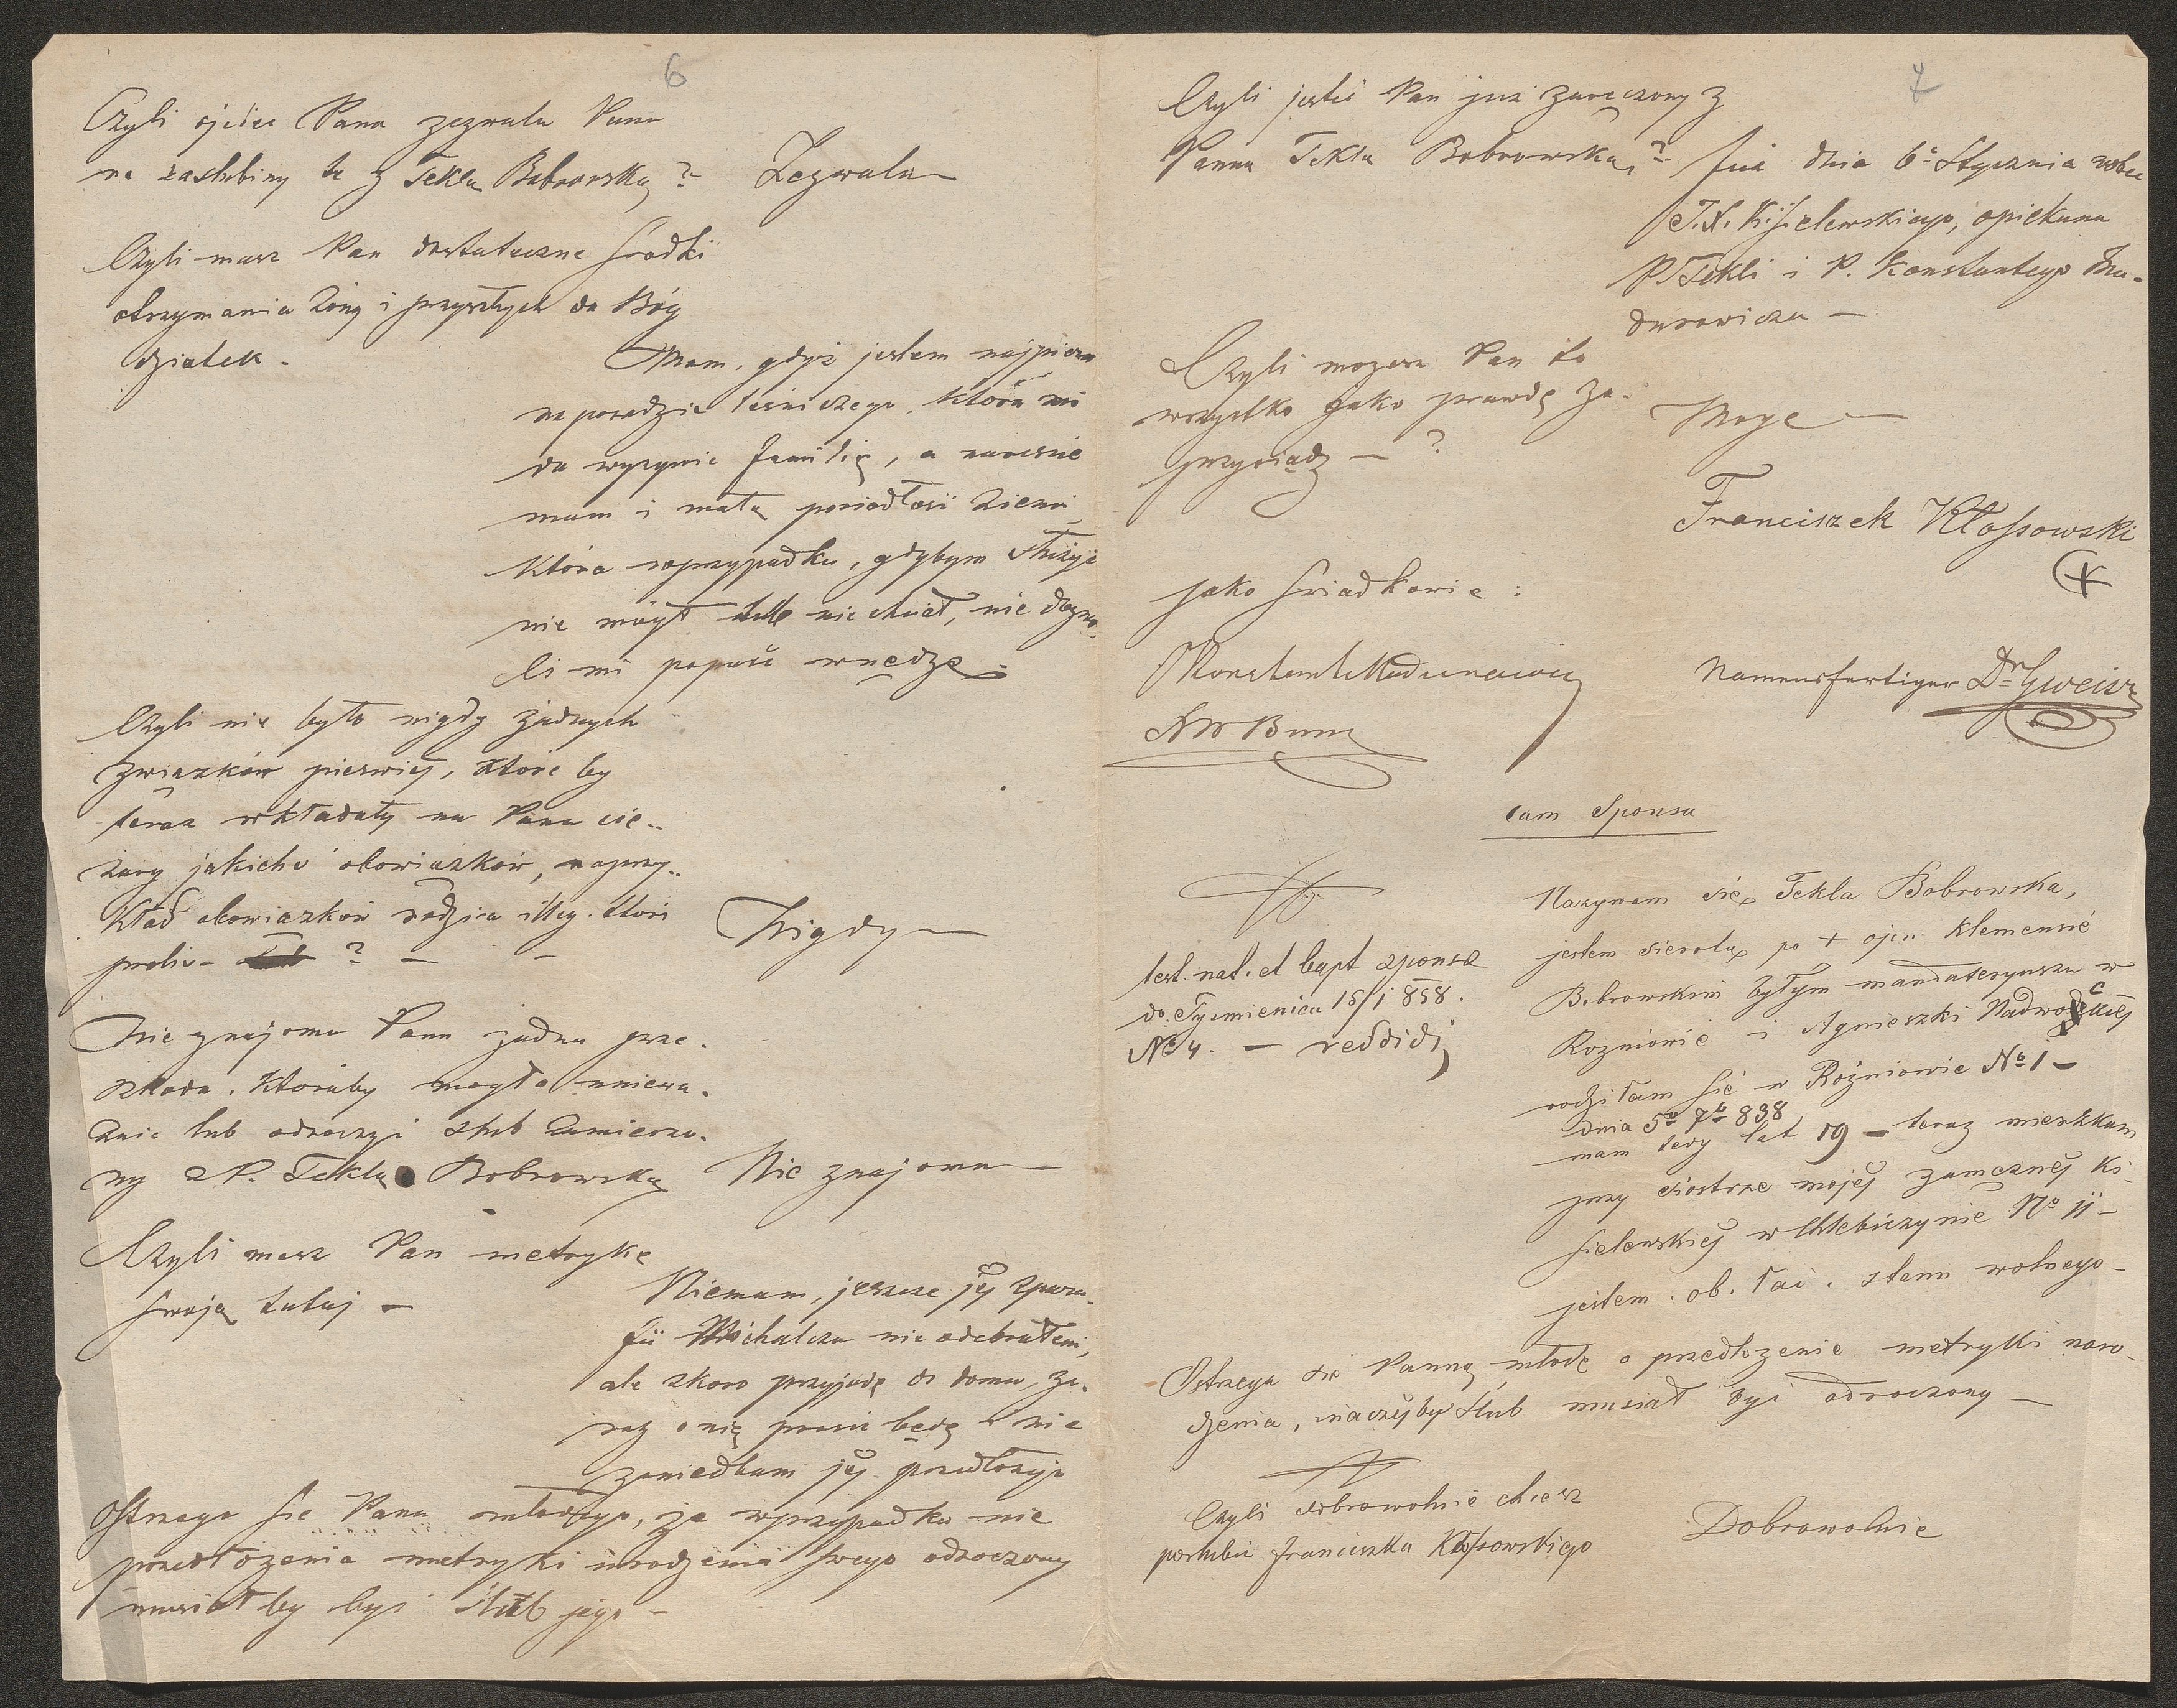 6
Czyli ojciec Pana zezwala Panu
na zaslubiny te z Teklą Bobrowską?
Zezwala –
Czyli masz Pan dostateczne srodki
otrzymania żony i przyszłych da Bóg
dziatek –
Mam, gdyż jestem najpierw
na posadzie leśniczego, która mi
da wyzywic familię, a nareście
mam i małą posiadłość ziemi
która w przypadku, gdybym służyć
nie mógł lub nie chciał, nie dozwo-
li mi popaść w nędzę –
Czyli nie było nigdy żadnych
związków pierwiej, które by
teraz wkładały na Pana cię-
żary jakichś obowiązków, naprzy-
kład obowiązków rodzica illeg. tori
prolis – ? – –
Nigdy –
Nie znajoma Panu żadna prze-
szkoda, któraby mogła uniewa-
żnić lub odroczyć ślub zamierzo-
ny z P. Teklą Bobrowską
Nie znajoma –
Czyli masz Pan metrykę
swoją tutaj –
Niemam, jeszcze jej z para-
fii Michalcza nie odebrałem,
ale skoro przyjadę do domu, za-
raz o nię prosić będę i nie
zaniedbam jej przedłożyć
Ostrzega sie Pana młodego, ze w przypadku nie
przedłożenia metryki urodzenia swego odroczony
musiał by być ślub jego –
7
Czyli jesteś Pan juz zaręczony z
Panną Teklą Bobrowską?
Już dnia 6º Stycznia wobec
J. X. Kisielewskiego, opiekuna
P. Tekli i P. Konstantego Ma-
durowicza –
Czyli mozesz Pan to
wszystko jako prawdę za-
przysiądz – ?
Mogę –
Franciszek Kłossowski
+
jako swiadkowie :
Konstanty Madurowicz
Namensfertiger Dr
cum Sponsa
test. nat. et bapt sponsae
do. Tyśmienica 15/1 858.
No 4. – reddidi
Nazywam się Tekla Bobrowska,
jestem sierotą po + ojcu Klemensie
Bobrowskim byłym mandataryuszu w
Rożniowie i Agnieszki
rodziłam się w Rożniowie No 1 –
dnia 5º 7b 838
mam tedy lat 19 – teraz mieszkam
przy siostrze mojej zamężnej Ki-
sielewskiej w Chlebiczynie No 11 –
jestem . ob. łać. stanu wolnego –
Ostrzega sie Panną młodę o przedłozenie metryki naro-
dzenia, inaczej by ślub musiał być odroczony –
Czyli dobrowolnie chcesz
poslubić Franciszka Kłossowskiego
Dobrowolnie